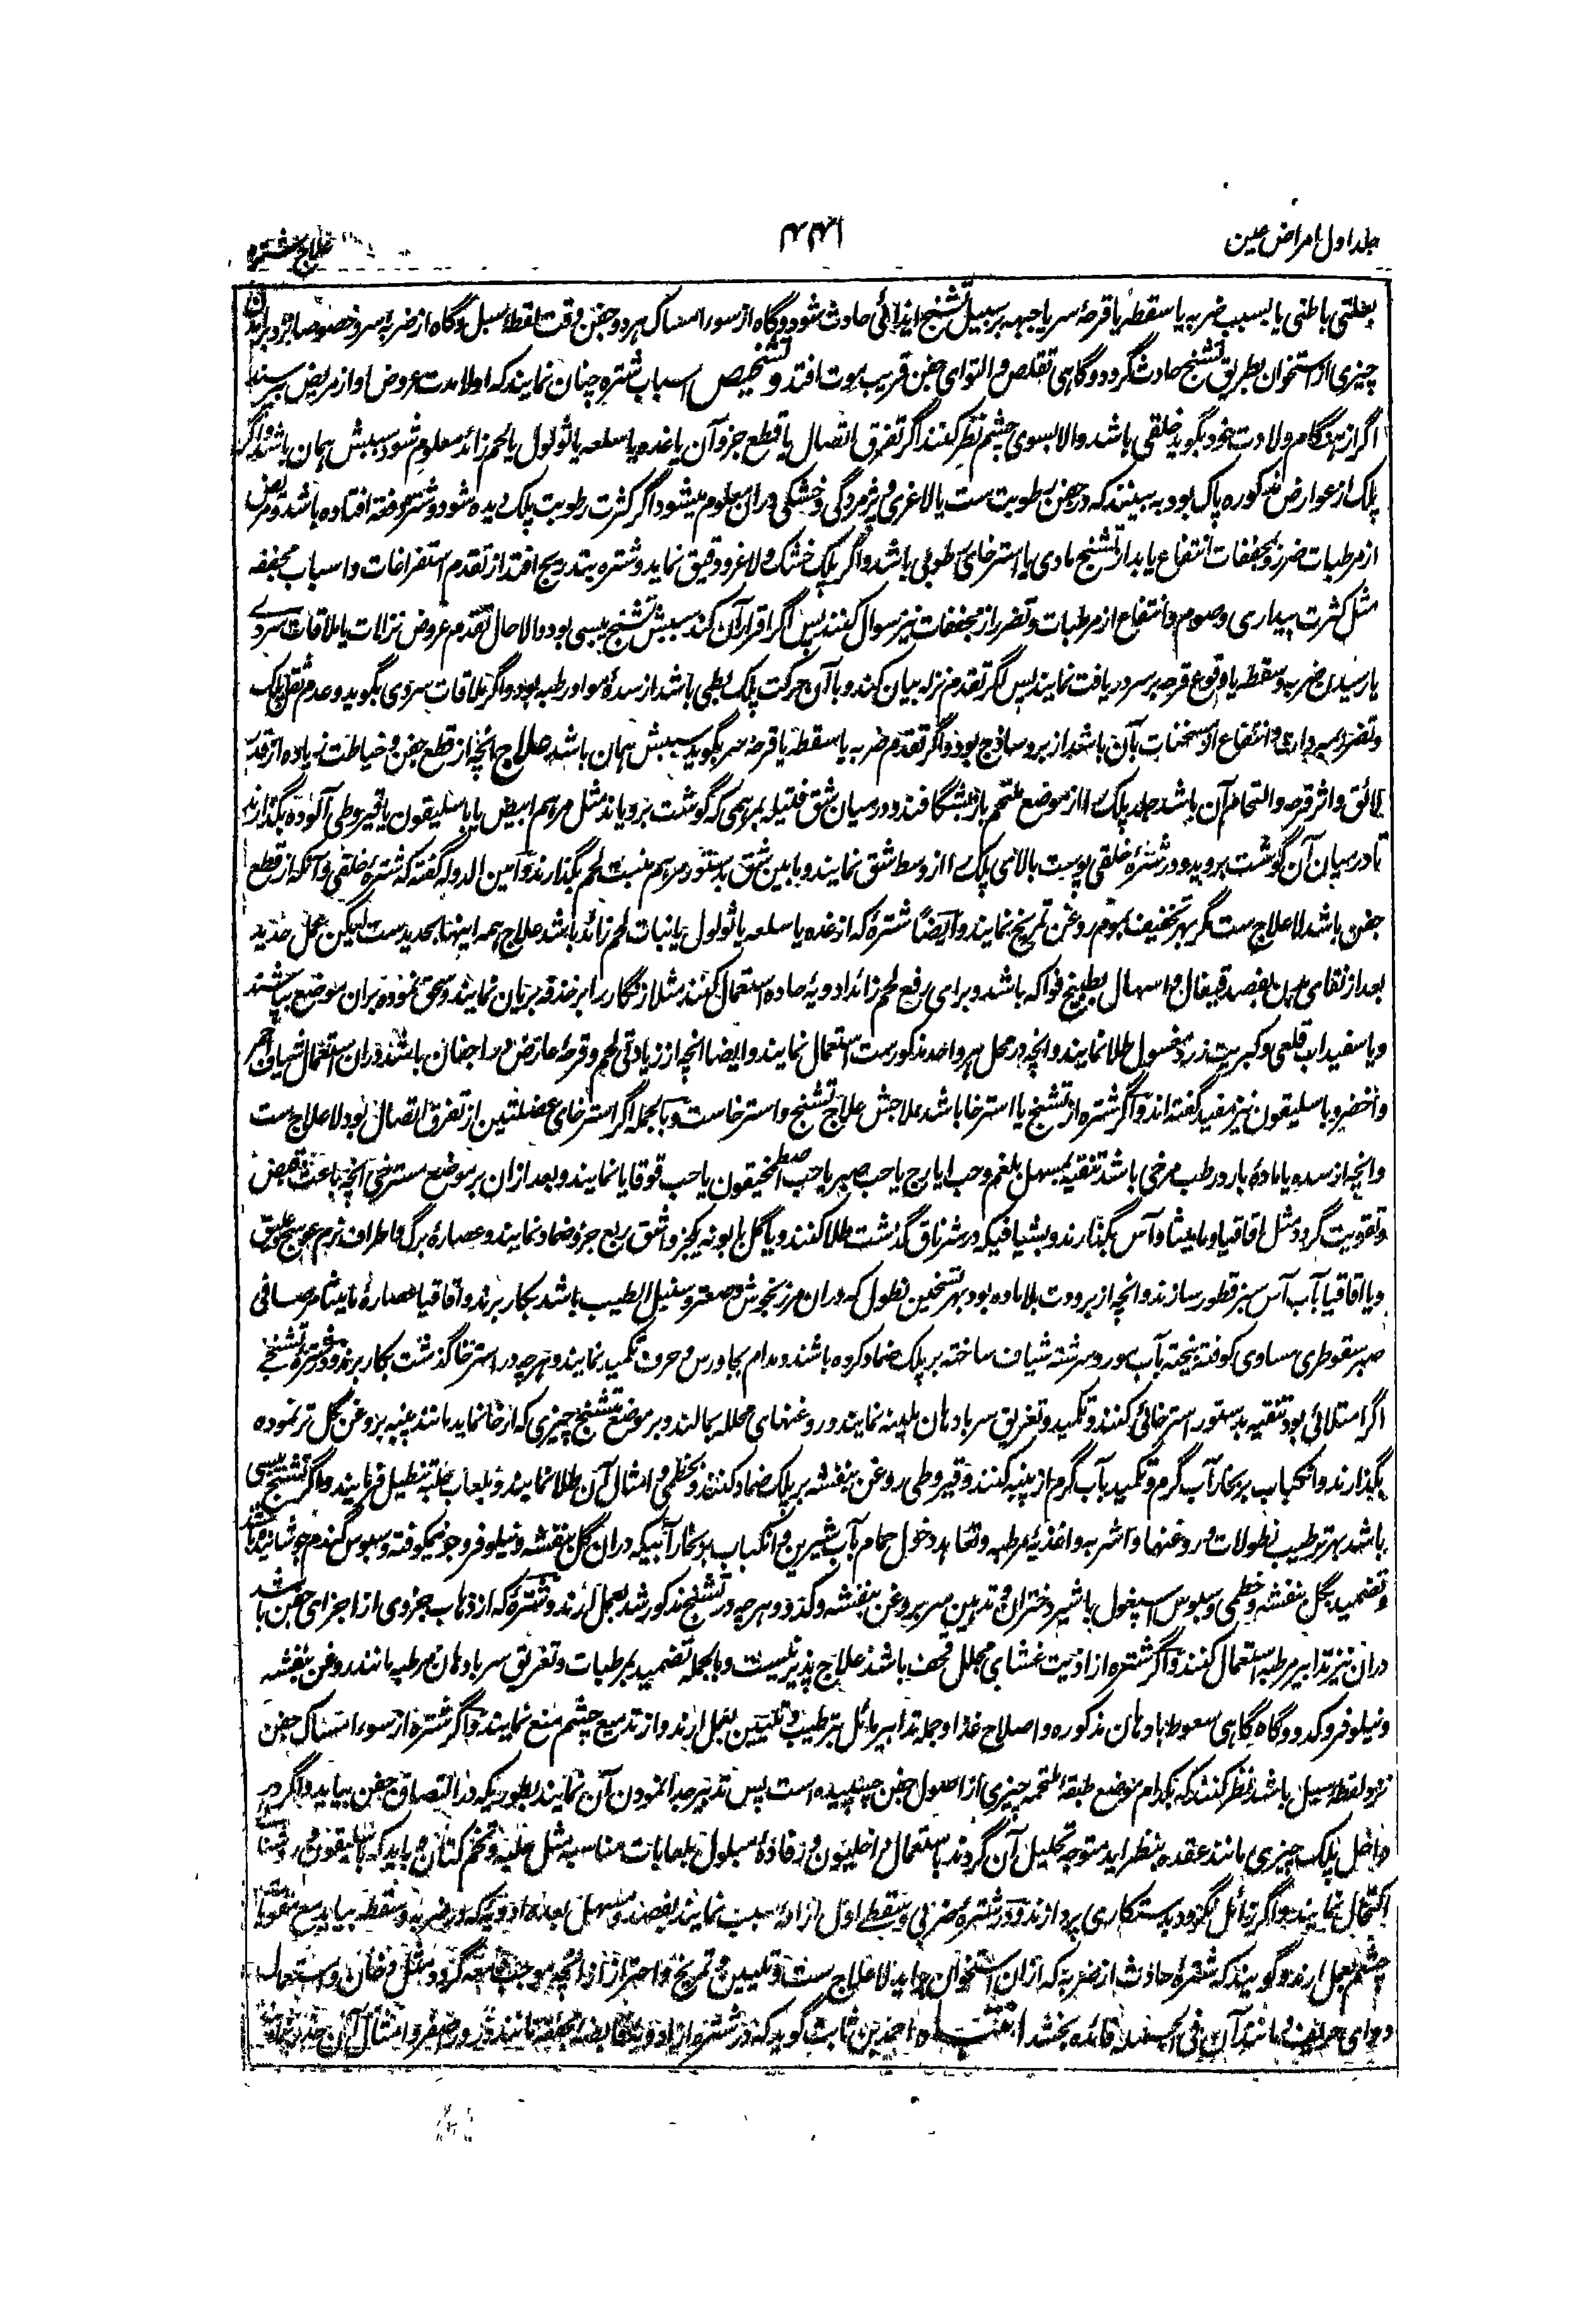 جلد اول امراض عین
علاج شتره
بعلتی باطنی یا بسبب ضربه یا سقطه یا قرحهٔ سر یا جبهه بر سبیل تشنج ایذائی حادث شود و گاه از سوء امساک هر دو جفن وقت لقط سبل و گاه از ضربهٔ سر و خصوصا
چیزی از استخوان بطریق تشنج حادث گردد و گاهی تقلص و التوای جفن قریب موت افتد و تشخیص اسباب شتره چنان نمایند که اولا مدت عروض او از مریض پرسند
اگر از هنگام ولادت خود بگوید خلقی باشد والا بسوی چشم نظر کنند اگر تفرق اتصال یا قطع جزو آن یا غده یا سلعه یا ثولول یا لحم زائد معلوم شود سببش همان باشد و اگر
پلک از عوارض مذکوره پاک بود به بینند که در جفن رطوبت ست یا لاغری و پژمردگی و خشکی دران معلوم میشود اگر کثرت رطوبت پلک دیده شود و شتره دفعة افتاده باشد و مریض
از مرطبات ضرر و بمجففات انتفاع یابد از تشنج مادی یا استرخای رطوبی باشد و اگر پلک خشک و لاغر و دقیق نماید و شتره بتدریج افتد از تقدم استفراغات و اسباب مجففه
مثل کثرت بیداری و صوم و انتفاع از مرطبات و تضرر از مجففات نیز سوال کنند پس اگر اقرار آن کند سببش تشنج یبسی بود والا حال تقدم عروض نزلات یا ملاقات سردی
یا رسیدن ضربه و سقطه یا وقوع قرحه بر سر دریافت نمایند پس اگر تقدم نزله بیان کند و با آن حرکت پلک بطی باشد از سدهٔ مواد رطبه بود و اگر ملاقات سردی بگوید و عدم ثقل پلک
و تضرر بسردات و انتفاع از مسخنات بآن باشد از برد ساذج بود و اگر تقدم ضربه یا سقطه یا قرحهٔ سر بگوید سببش همان باشد علاج انچه از قطع جفن و خیاطت زیاده از قدر
لائق و اثر قرحه و التحام آن باشد جلد پلک را از موضع ملتحم باز بشگافند و در میان شق فتیله بمرهمی که گوشت برویاند مثل مرهم ابیض یا باسلیقون یا قیروطی آلوده بگذارند
تا در میان آن گوشت بروید و در شترهٔ خلقی پوست بالای پلک را از وسط شق نمایند و مابین شق بدستور مرهم منبت لحم بگذارند و امین الدوله گفته که شترهٔ خلقی و آنکه از قطع
جفن باشد لا علاج ست مگر بهر تخفیف بموم روغن تمریخ نمایند و ایضاً شترهٔ که از غده یا سلعه یا ثولول یا نبات لحم زائد باشد علاج همه اینها بحدید ست لیکن عمل حدید
بعد از نقای بدن بفصد قیفال و اسهال بطبیخ فواکه باشد و برای رفع لحم زائد ادویه حاده استعمال کنند مثلا زنگار برابر خذفه بریان نمایند و سحق نموده بران موضع بپاشند
و یا سفیداب قلعی و کبریت زرد مغسول طلا نمایند و انچه در محل هر واحد مذکور ست استعمال نمایند و ایضا انچه از زیادتی لحم و قرحهٔ عارض در اجفان باشد دران استعمال شیاف احمر
و اخضر و باسلیقون نیز مفید گفته اند و اگر شتره از تشنج یا استرخا باشد علاجش علاج تشنج و استرخاست و بالجمله اگر استرخای عضلتین از تفرق اتصال بود لا علاج ست
و انچه از سده یا مادهٔ بارد رطب مرخی باشد تنقیه بمسهل بلغم و حب ایارج یا حب صبر یا حب اصطمخیقون یا حب قوقایا نمایند و بعد ازان بر موضع مسترخی انچه باعث قبض
و تقویت گردد مثل اقاقیا و مامیثا و آس بگذارند و بشیافیکه در شرناق گذشت طلا کنند و یا گل بابونه یکجز و اشق ربع جزو ضماد نمایند و عصارهٔ برگ و اطراف نرم عوسج و علیق
و یا اقاقیا بآب آس سبز قطور سازند و انچه از برودت بلا ماده بود بهر تسخین نطول که دران مرزنجوش و صعتر و سنبل الطیب باشد بکار برند و اقاقیا عصارهٔ مامیثا مر صافی
صبر سقوطری مساوی کوفته بیخته بآب مورد سرشته شیاف ساخته بر پلک ضماد کرده باشند و مدام بجاورس و حرف تکمید نمایند و هرچه در استرخا گذشت بکار برند و در شترهٔ تشنجی
اگر امتلائی بود تنقیه بدستور استرخائی کنند و تکمید و تغریق سر بادهان ملینه نمایند و روغنهای محلله بمالند و بر موضع متشنج چیزی که ارخا نماید مانند پنبه بروغن گل تر نموده
بگذارند و انکباب بر بخار آب گرم و تکمید بآب گرم از پنبه کنند و قیروطی روغن بنفشه بر پلک ضماد کنند و بخطمی و امثال آن طلا نمایند و بلعاب حلبه تنطیل فرمایند و اگر تشنج یبسی
باشد بهر ترطیب نطولات و روغنها و اشربه و اغذیهٔ مرطبه و تعاهد دخول حمام بآب شیرین و انکباب بر بخار آبیکه دران گل بنفشه و نیلوفر و جو نیمکوفته و سبوس گندم جوشانیده باشند
و تضمید بگل بنفشه و خطمی و سبوس اسپغول با شیر دختران و تدهین سر بروغن بنفشه و کدو و هرچه در تشنج مذکور شد بعمل آرند و شترهٔ که از ذهاب جزوی از اجزای جفن باشد
دران نیز تدابیر مرطبه استعمال کنند و اگر شتره از اذیت غشای مجلل قحف باشد علاج پذیر نیست و بالجمله تضمید بمرطبات و تغریق سر بادهان مرطبه مانند روغن بنفشه
و نیلوفر و کدو و گاه گاهی سعوط بادهان مذکوره و اصلاح غذا و جمله تدابیر مائل بترطیب و تلیین بعمل آرند و از تدسیع چشم منع نمایند و اگر شتره از سوء امساک جفن
نزد لقط سبل باشد نظر کنند که بکدام موضع طبقهٔ ملتحمه چیزی از اصول جفن چسپیده است پس تدبیر جدا نمودن آن نمایند بطوریکه در التصاق جفن بیاید و اگر در
داخل پلک چیزی مانند عقده بنظر آید متوجه تحلیل آن گردند باستعمال داخلیون و رفادهٔ مبلول بلعابات مناسبه مثل حلبه و تخم کتان و باید که باسلیقون و روشنایا
اکتحال نمایند و اگر زائل نگردد بدستکاری پردازند و در شترهٔ ضربی و سقطی اول ازالهٔ سبب نمایند بفصد و مسهل بعده ادویه که در ضربه و سقطه بیاید مع مقویات
چشم بعمل آرند و گویند که شترهٔ حادث از ضربه که ازان استخوان برآید لا علاج ست و تلیین و تمریخ و احتراز از انچه موجب دمعه گردد مثل دخان و استعمال
دوای حریف و مانند آن فی الجمله فائده بخشد انتباه احمد بن ثابت گوید که در شتره از ادویهٔ قابضه مجففه مانند ذرور اصفر و امثال آن حذر نمایند